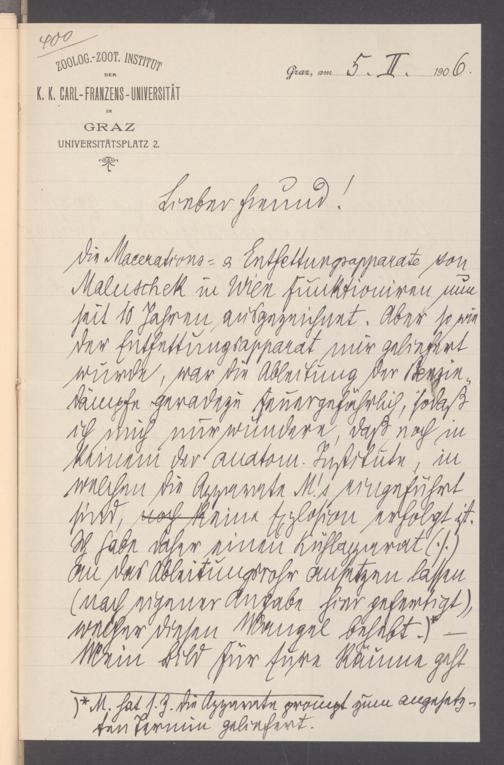 400
ZOOLOG.-ZOOT. INSTITUT
DER
K. K. CARL-FRANZENS-UNIVERSITÄT
IN
GRAZ
UNIVERSITÄTSPLATZ 2.
Graz, am 5. II. 1906.
Lieber Freund!
Die Macerations- & Entfettungsapparate von
Maluschek in Wien funktioniren nun
seit 10 Jahren ausgezeichnet. Aber so wie
der Entfettungsapparat mir geliefert
wurde, war die Ableitung der Benzin-
dämpfe geradezu feuergefährlich, sodaß
ich mich nur wundere, daß noch in
keinem der anatom. Institute, in
welchen die Apparate M.'s eingeführt
sind, noch keine Explosion erfolgt ist.
Ich habe daher einen Kühlapparat (1.)
an das Ableitungsrohr ansetzen lassen
(nach eigener Angabe hier gefertigt),
welcher diesen Mangel behebt.)* —
Mein Bild für Eure Räume geht
)* M. hat s. Z. die Apparate prompt zum angesetz-
ten Termin geliefert.